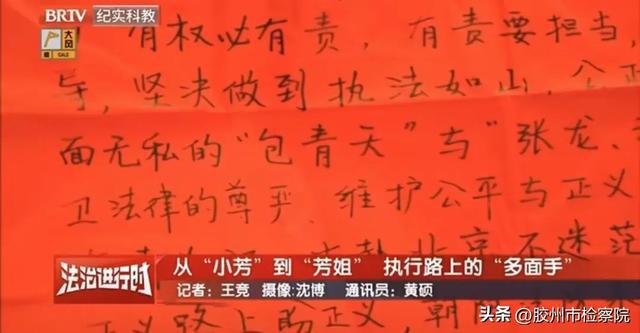 BRTV 纪实科教
大风
GALE
有权必有责，有责要担当，
导，坚决做到执法如山，公正
面无私的“包青天”与“张龙、
卫法律的尊严、维护公平与正义
北京不迷茫
正义路上盼正义，朝阳
法治进行时
从“小芳”到“芳姐” 执行路上的“多面手”
记者：王竞 摄像:沈博 通讯员：黄硕
头条 @胶州市检察院